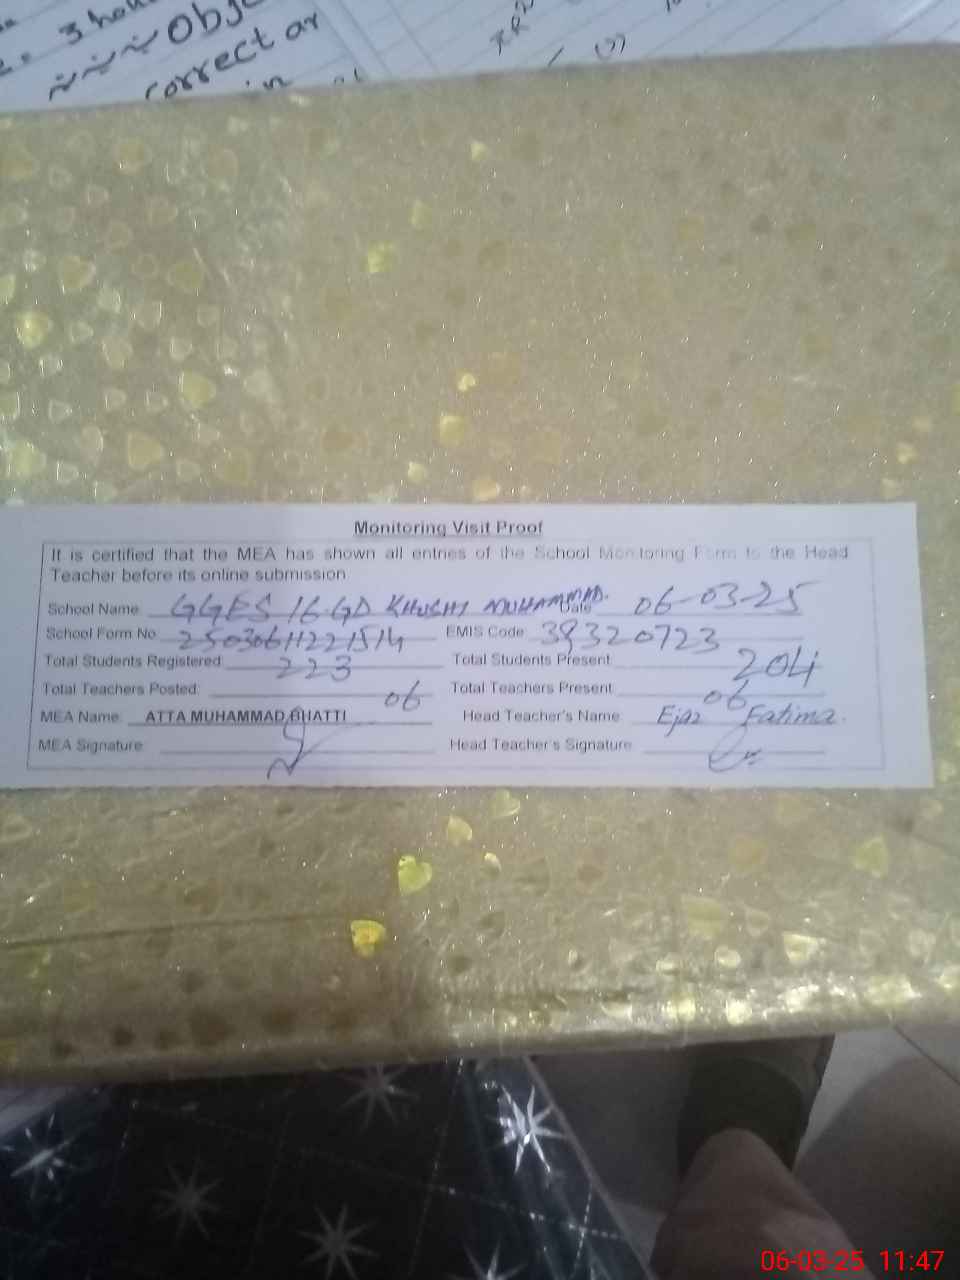 3
Obj
correct ar
in
(2)
Monitoring Visit Proof
It is certified that the MEA has shown all entries of the School Monitoring Form to the Head
Teacher before its online submission
School Name GGES 16.GD KHUSHI MUHAMMAD. Date 06-03-25
School Form No 25030611221514 EMIS Code: 39320723
Total Students Registered 223 Total Students Present 204
Total Teachers Posted: 06 Total Teachers Present 06
MEA Name: ATTA MUHAMMAD BHATTI Head Teacher's Name Ejaz Fatima.
MEA Signature: Head Teacher's Signature
06-03-25 11:47